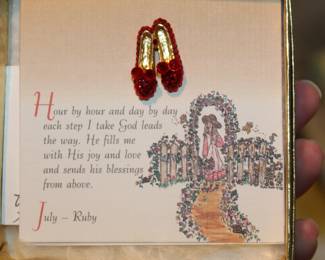 Hour by hour and day by day
each step I take God leads
the way. He fills me
with His joy and love
and sends his blessings
from above.
July – Ruby